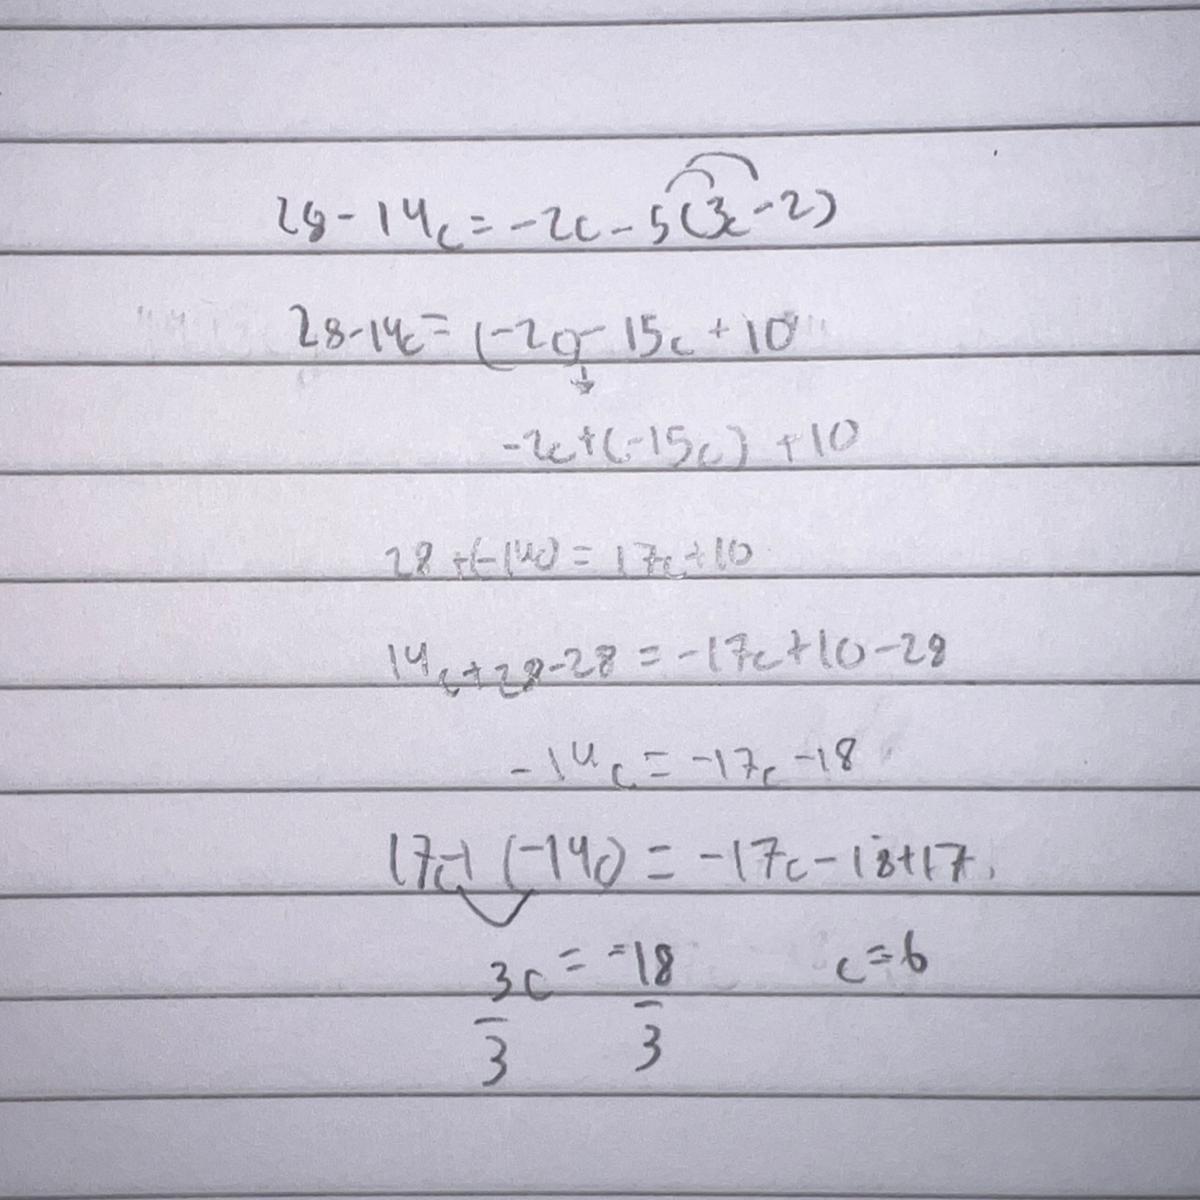 28 - 14c = -2c - 5(3c - 2)
28 - 14c = (-2c) - 15c + 10
-2c + (-15c) + 10
28 + (-14c) = 17c + 10
14c + 28 - 28 = -17c + 10 - 28
-14c = -17c - 18
17c + (-14c) = -17c - 18 + 17
3c = -18 c = 6
3 3